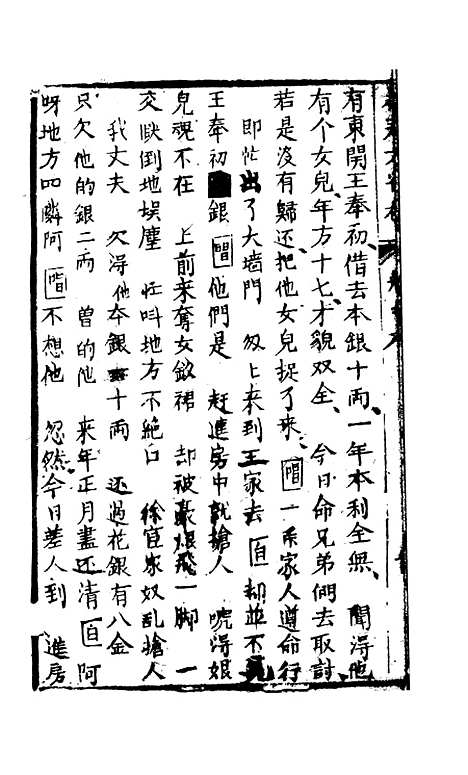 有東關王奉初、借去本銀十両、一年本利全無、 聞得他
有个女兒、年方十七、才貌双全、 今日命兄弟們去取討、
若是沒有歸还、把他女兒捉了来、唱 一系家人遵命行
即忙出了大墙門 匆上来到王家去 白 却並不見
王奉初 銀 唱 他們是 赶進房中就搶人 唬得娘
兒魂不在 上前来奪女釵裙 却被豪奴飛一脚 一
交跌到地埃塵 狂叫地方不絕口 徐宦家奴乱搶人
我丈夫 欠得他本銀十両 还過花銀有八金
只欠他的銀二両 曾的他 来年正月盡还清 白 阿
呀地方四隣阿 唱 不想他 忽然今日差人到 進房